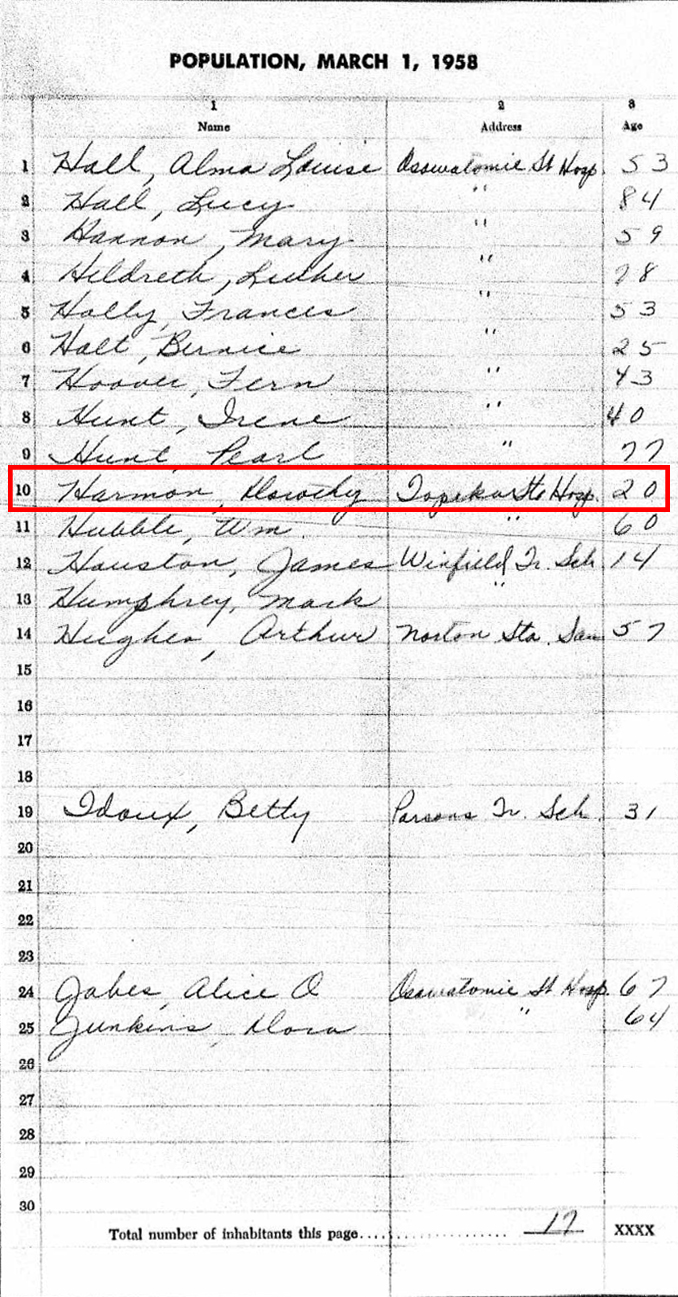 POPULATION, MARCH 1, 1958
1 2 3
Name Address Age
1 Hall, Alma Louise Osawatomie St Hosp. 53
2 Hall, Lucy " 84
3 Hannon, Mary " 59
4 Hildreth, Luther " 78
5 Holly, Frances " 53
6 Holt, Bernice " 25
7 Hoover, Fern " 43
8 Hunt, Irene " 40
9 Hunt, Pearl " 77
10 Harmon, Dorothy Topeka Ste Hosp. 20
11 Hubble, Wm. " 60
12 Houston, James Winfield Tr. Sch 14
13 Humphrey, Mark "
14 Hughes, Arthur Norton Sta. San 57
15
16
17
18
19 Idoux, Betty Parsons Tr. Sch. 31
20
21
22
23
24 Jabes, Alice O Osawatomie St Hosp. 67
25 Junkins, Dora " 64
26
27
28
29
30
Total number of inhabitants this page 17 XXXX